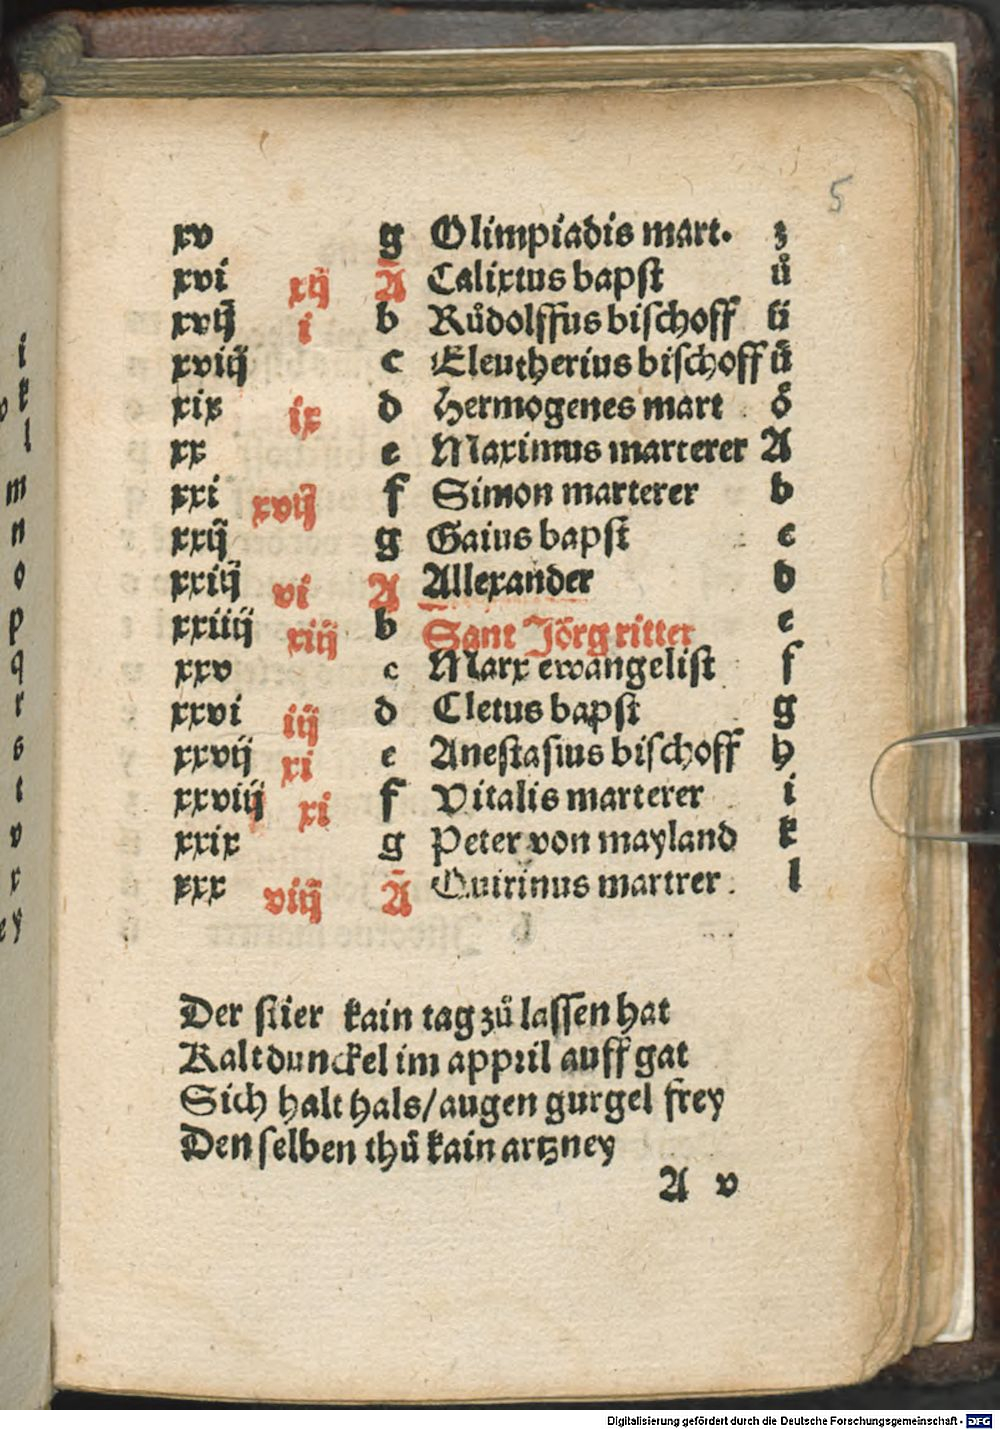 5
xv g Olimpiadis mart. ʒ
xvi xij A Calixtus bapst ů
xvij i b Růdolffus bischoff ü
xviij c Eleutherius bischoff ů
xix ix d Hermogenes mart ö
xx e Maximus marterer A
xxi xvij f Simon marterer b
xxij g Gaius bapst c
xxiij vi A Allexander d
xxiiij xiiij b Sant Jörg ritter e
xxv c Marx ewangelist f
xxvi iij d Cletus bapst g
xxvij xi e Anestasius bischoff h
xxviij xi f Vitalis marterer i
xxix g Peter von mayland k
xxx viij A Quirinus martrer. l
Der stier kain tag zů lassen hat
Kalt dunckel im appril auff gat
Sich halt hals/augen gurgel frey
Den selben thů kain artzney
A v
i
k
l
m
n
o
p
q
r
s
t
v
x
y
Digitalisierung gefördert durch die Deutsche Forschungsgemeinschaft - DFG